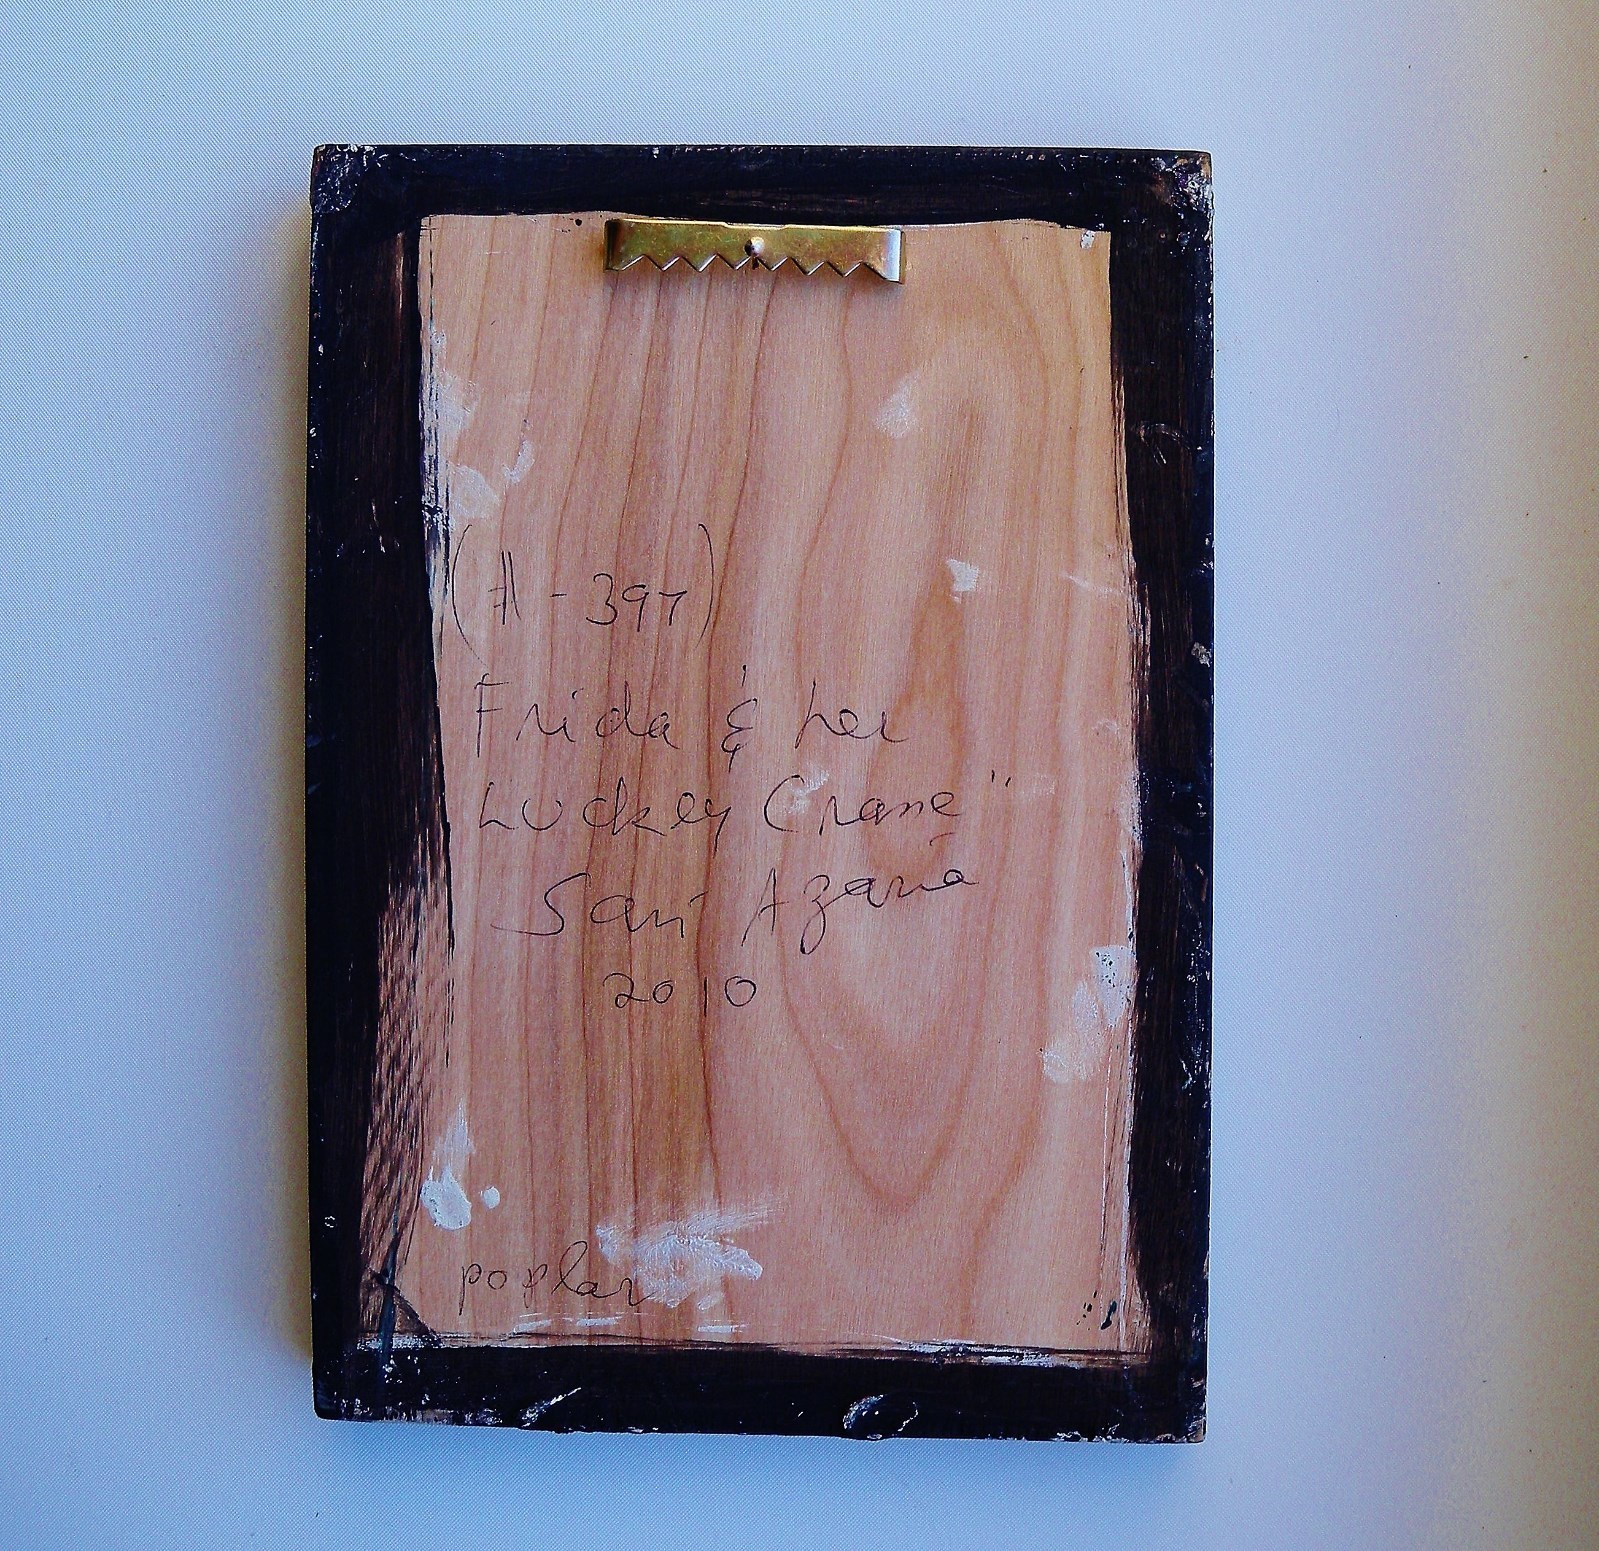 (# - 397)
Frida & her
Luckey Crane"
Sari Azaria
2010
poplar